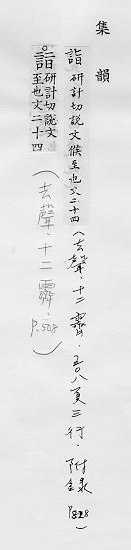 集韻
詣 研計切說文候至也文二十四(去聲.十二霽.五〇八頁三行.附錄 P828)
詣 研計切說文
至也文二十四
(去聲.十二霽.P.508)